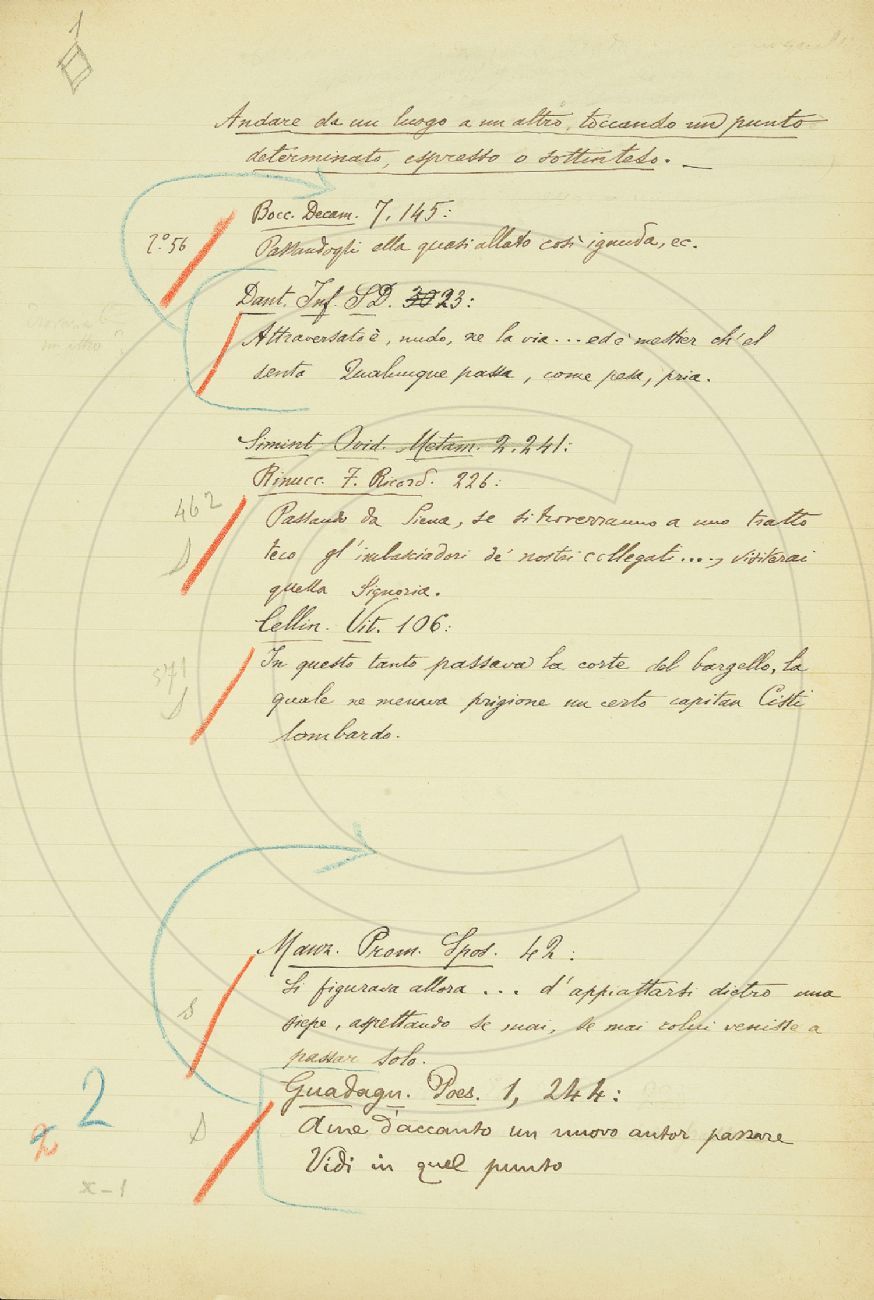 1
Andare da un luogo a un altro, toccando un punto
determinato, espresso o sottinteso. —
Bocc. Decam. 7. 145:
2.° 56
Passandogli ella quasi allato così ignuda, ec.
Dant. Inf. SD. 30 23:
Attraversato è, nudo, ne la via ... ed è mestier ch' el
senta Qualunque passa, come pesa, pria.
Simint. Ovid. Metam. 2. 241:
Rinucc. F. Ricord. 226:
462
Passando da Siena, se si troverranno a uno tratto
S
teco gl' imbasciadori de' nostri collegati ..., visiterai
quella Signoria.
Cellin. Vit. 106:
571
In questo tanto passava la corte del bargello, la
S
quale ne menava prigione un certo capitan Cisti
lombardo.
Manz. Prom. Spos. 42:
Si figurava allora ... d' appiattarsi dietro una
S
siepe, aspettando se mai, se mai colui venisse a
passar solo.
Guadagn. Poes. 1, 244:
S
A me d'accanto un nuovo autor passare
Vidi in quel punto
2
2
x-1